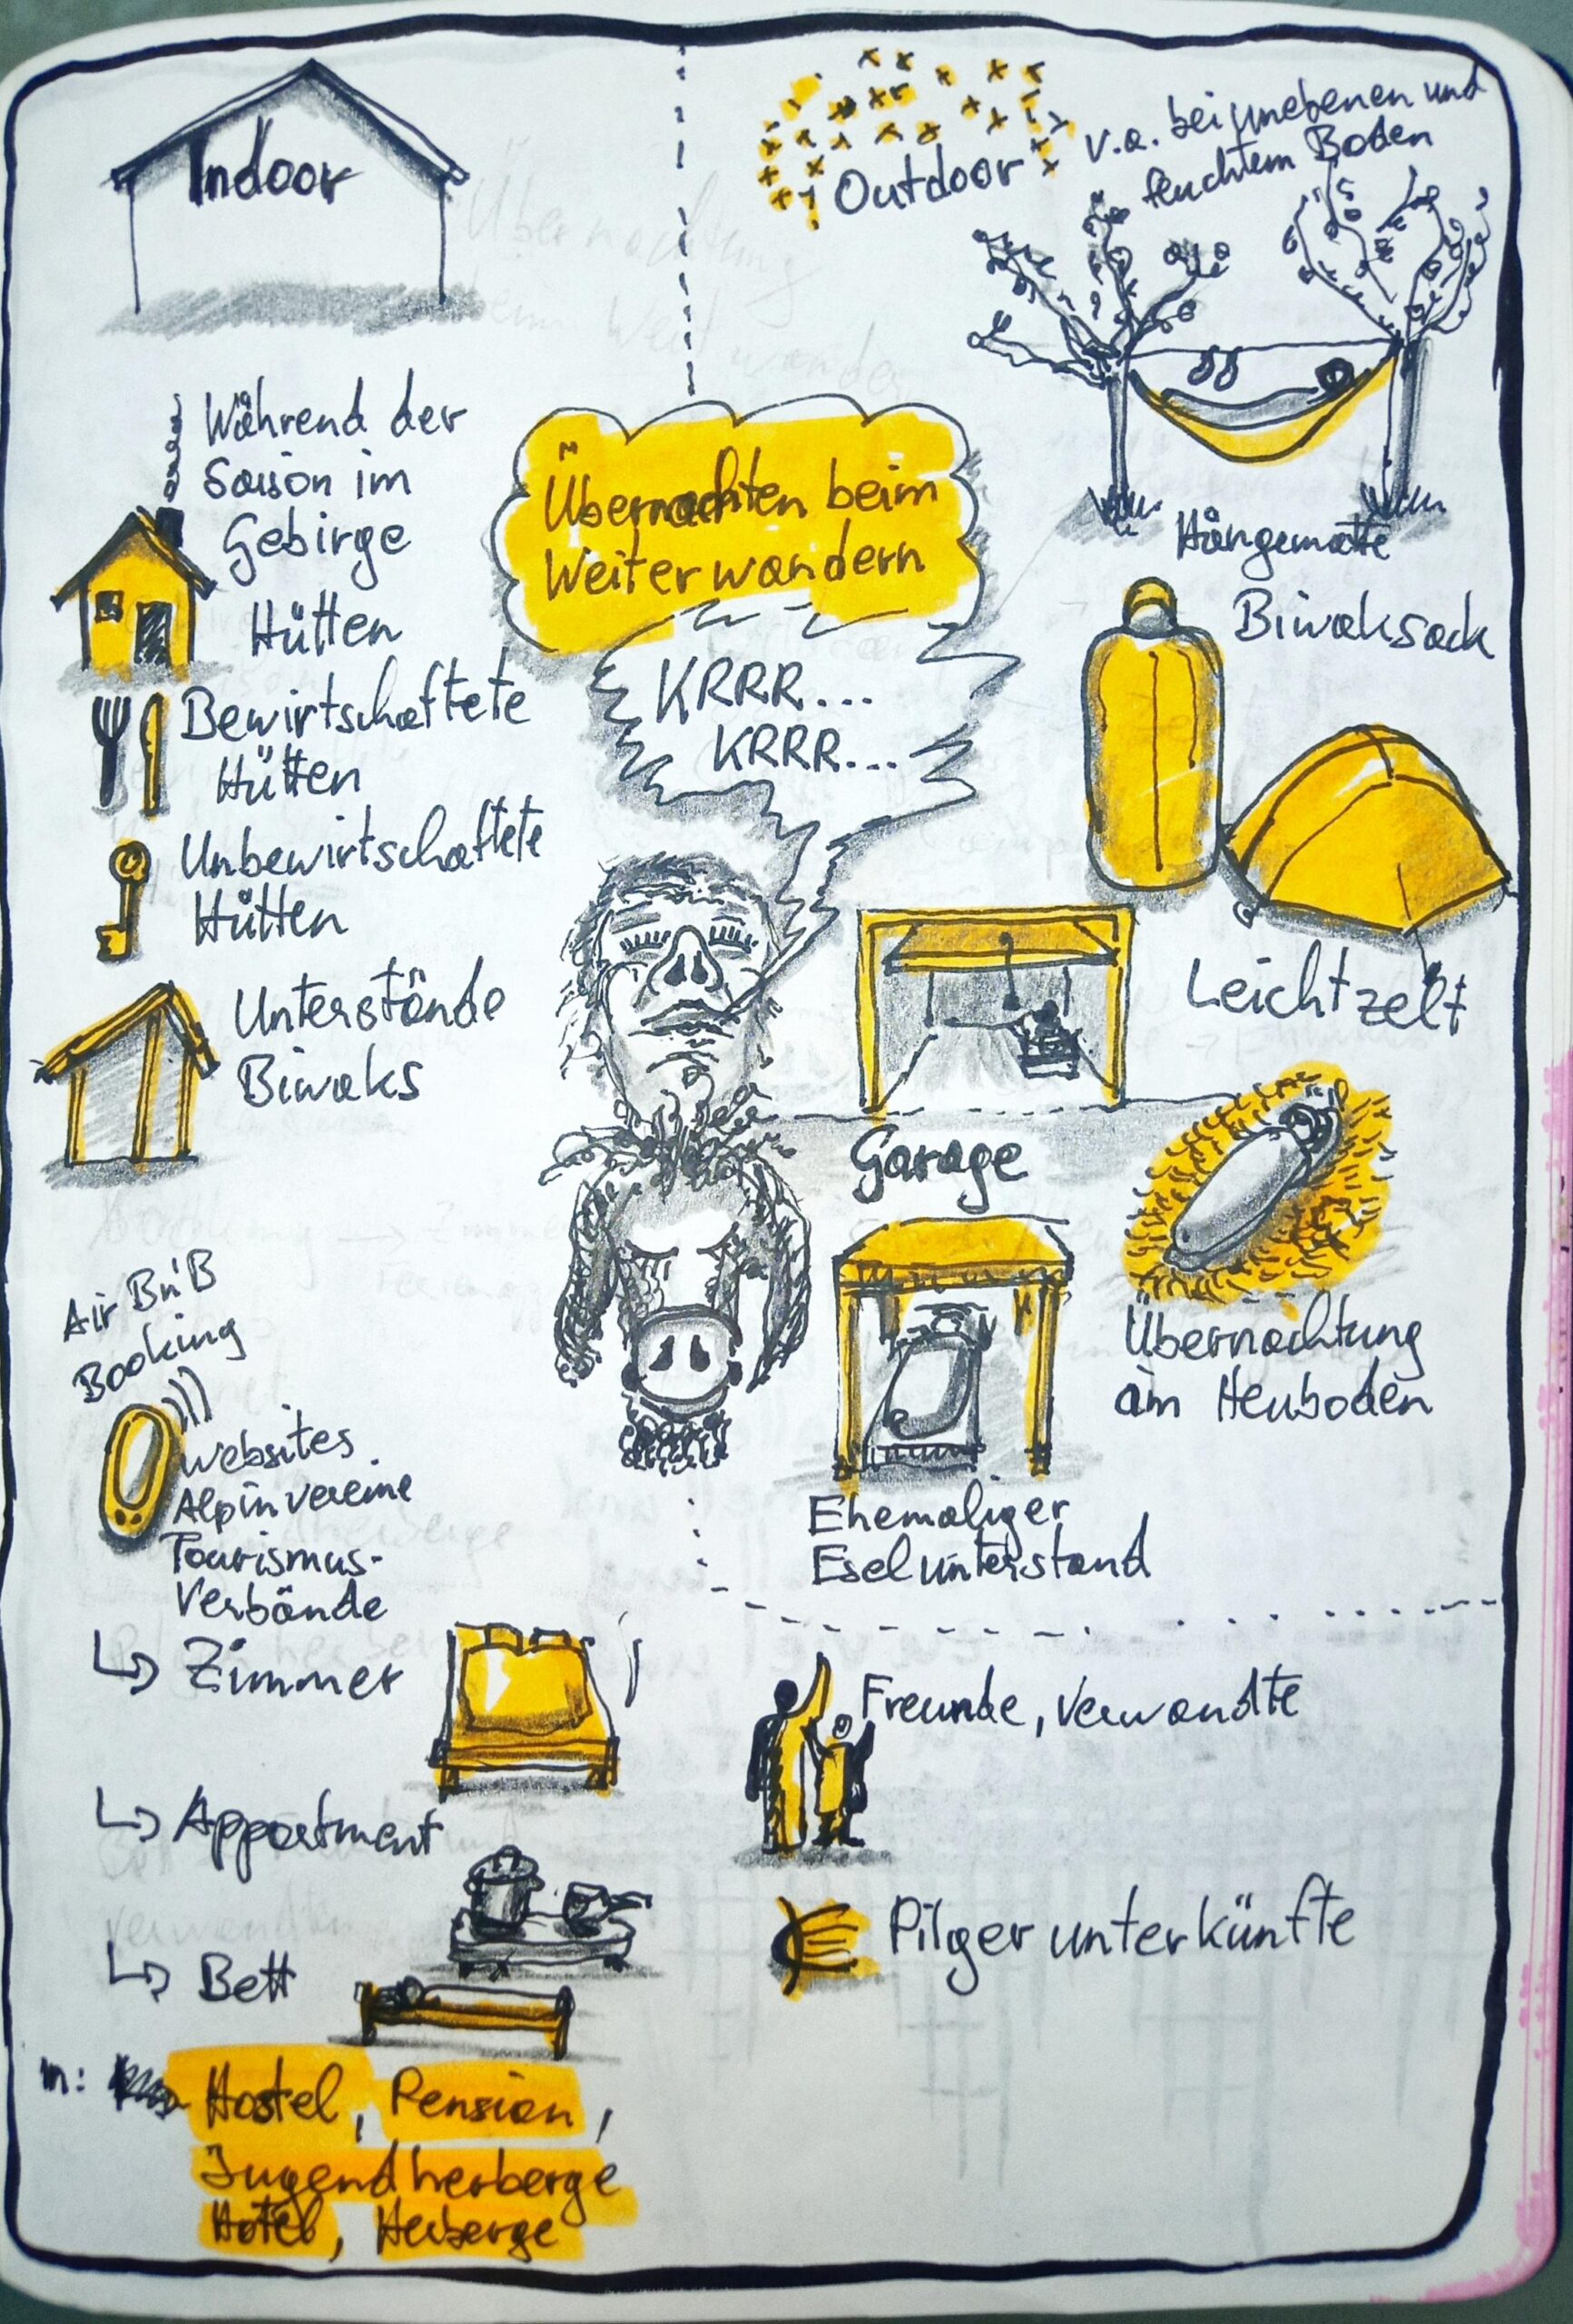 Indoor
Outdoor
v.a. bei unebenen und
feuchtem Boden
Übernachten beim
Weiterwandern
KRRR...
KRRR...
Während der
Saison im
Gebirge
Hütten
Bewirtschaftete
Hütten
Unbewirtschaftete
Hütten
Unterstände
Biwaks
Air Bn'B
Booking
Websites
Alpinvereine
Tourismus-
Verbände
↳ Zimmer
↳ Appartment
↳ Bett
in:
Hostel, Pension,
Jugendherberge
Hotel, Herberge
Hängematte
Biwaksack
Leichtzelt
Garage
Übernachtung
am Heuboden
Ehemaliger
Eselunterstand
Freunde, Verwandte
Pilgerunterkünfte